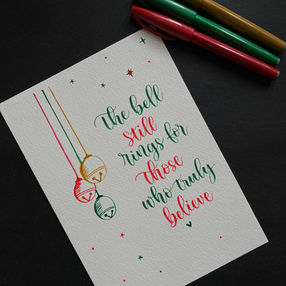 the bell
still
rings for
those
who truly
believe